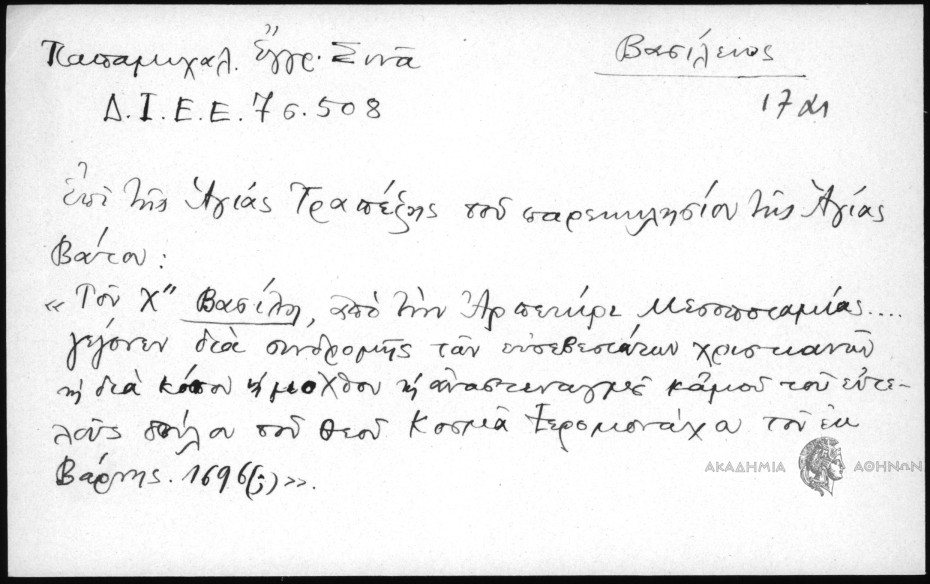 Παπαμιχαλ. Ἔγγρ. Σινᾶ
Βασίλειος
Δ. Ι. Ε. Ε. 76. 508
17 αι
Ἐπὶ τῆς Ἁγίας Τραπέζης τοῦ παρεκκλησίου τῆς Ἁγίας
Βάτου:
«Τοῦ Χ" Βασίλη, ἀπὸ τὴν Ἀρπεκίρι Μεσοποταμίας....
γέγονεν διὰ συνδρομῆς τῶν εὐσεβεστάτων χριστιανῶν
κ διὰ κόπου κ μοχθου κ ἀναστεναγμοῦ κἀμοῦ τοῦ εὐτε-
λοῦς δούλου τοῦ θεοῦ Κοσμᾶ Ἱερομονάχου τοῦ ἐκ
Βάρνης. 1696(;)».
ΑΚΑΔΗΜΙΑ ΑΘΗΝΩΝ